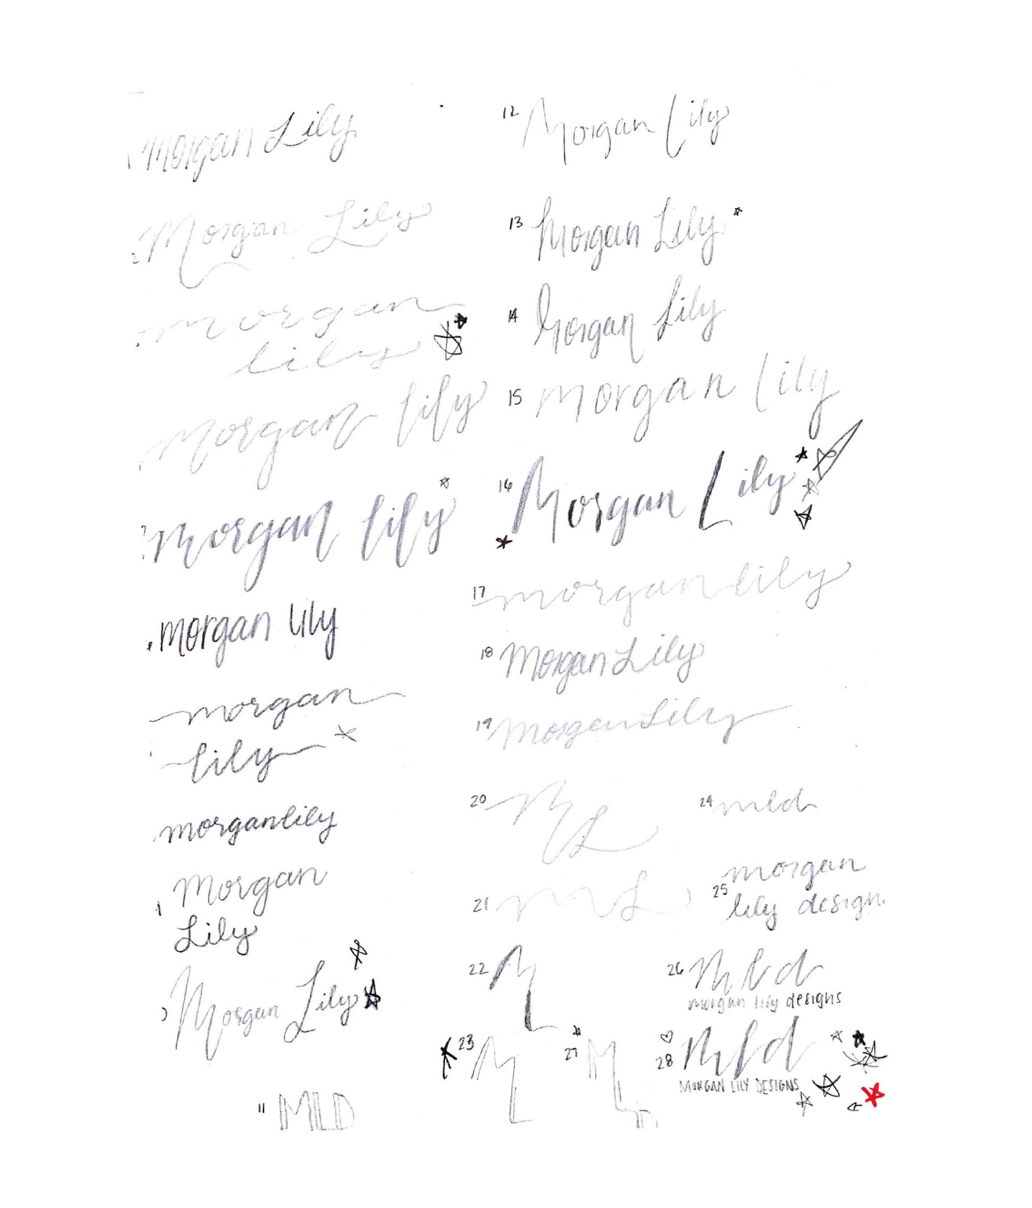 Morgan Lily
2 Morgan Lily
morgan
lily
morgan lily
morgan lily
morgan lily
morgan
lily
morganlily
Morgan
Lily
Morgan Lily
11 MLD
12 Morgan Lily
13 Morgan Lily
14 Morgan Lily
15 morgan lily
16 Morgan Lily
17 morganlily
18 MorganLily
19 MorganLily
20 ML
21 ML
22 ML
23 ML
24 mld
25 morgan
lily design
26 mld
morgan lily designs
27 MLD
28 mld
MORGAN LILY DESIGNS